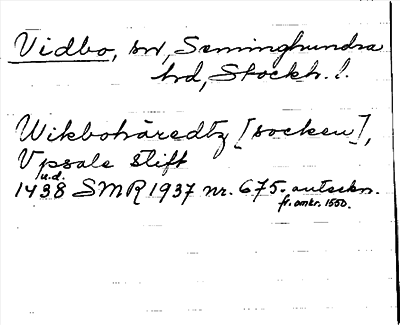 Vidbo, sn, Seminghundra
hd, Stockh. l.
Wikbohäredtz [socken],
Vpsale stift
u.d.
1438 SMR 1937 nr. 675. anteckn.
fr. omkr. 1550.